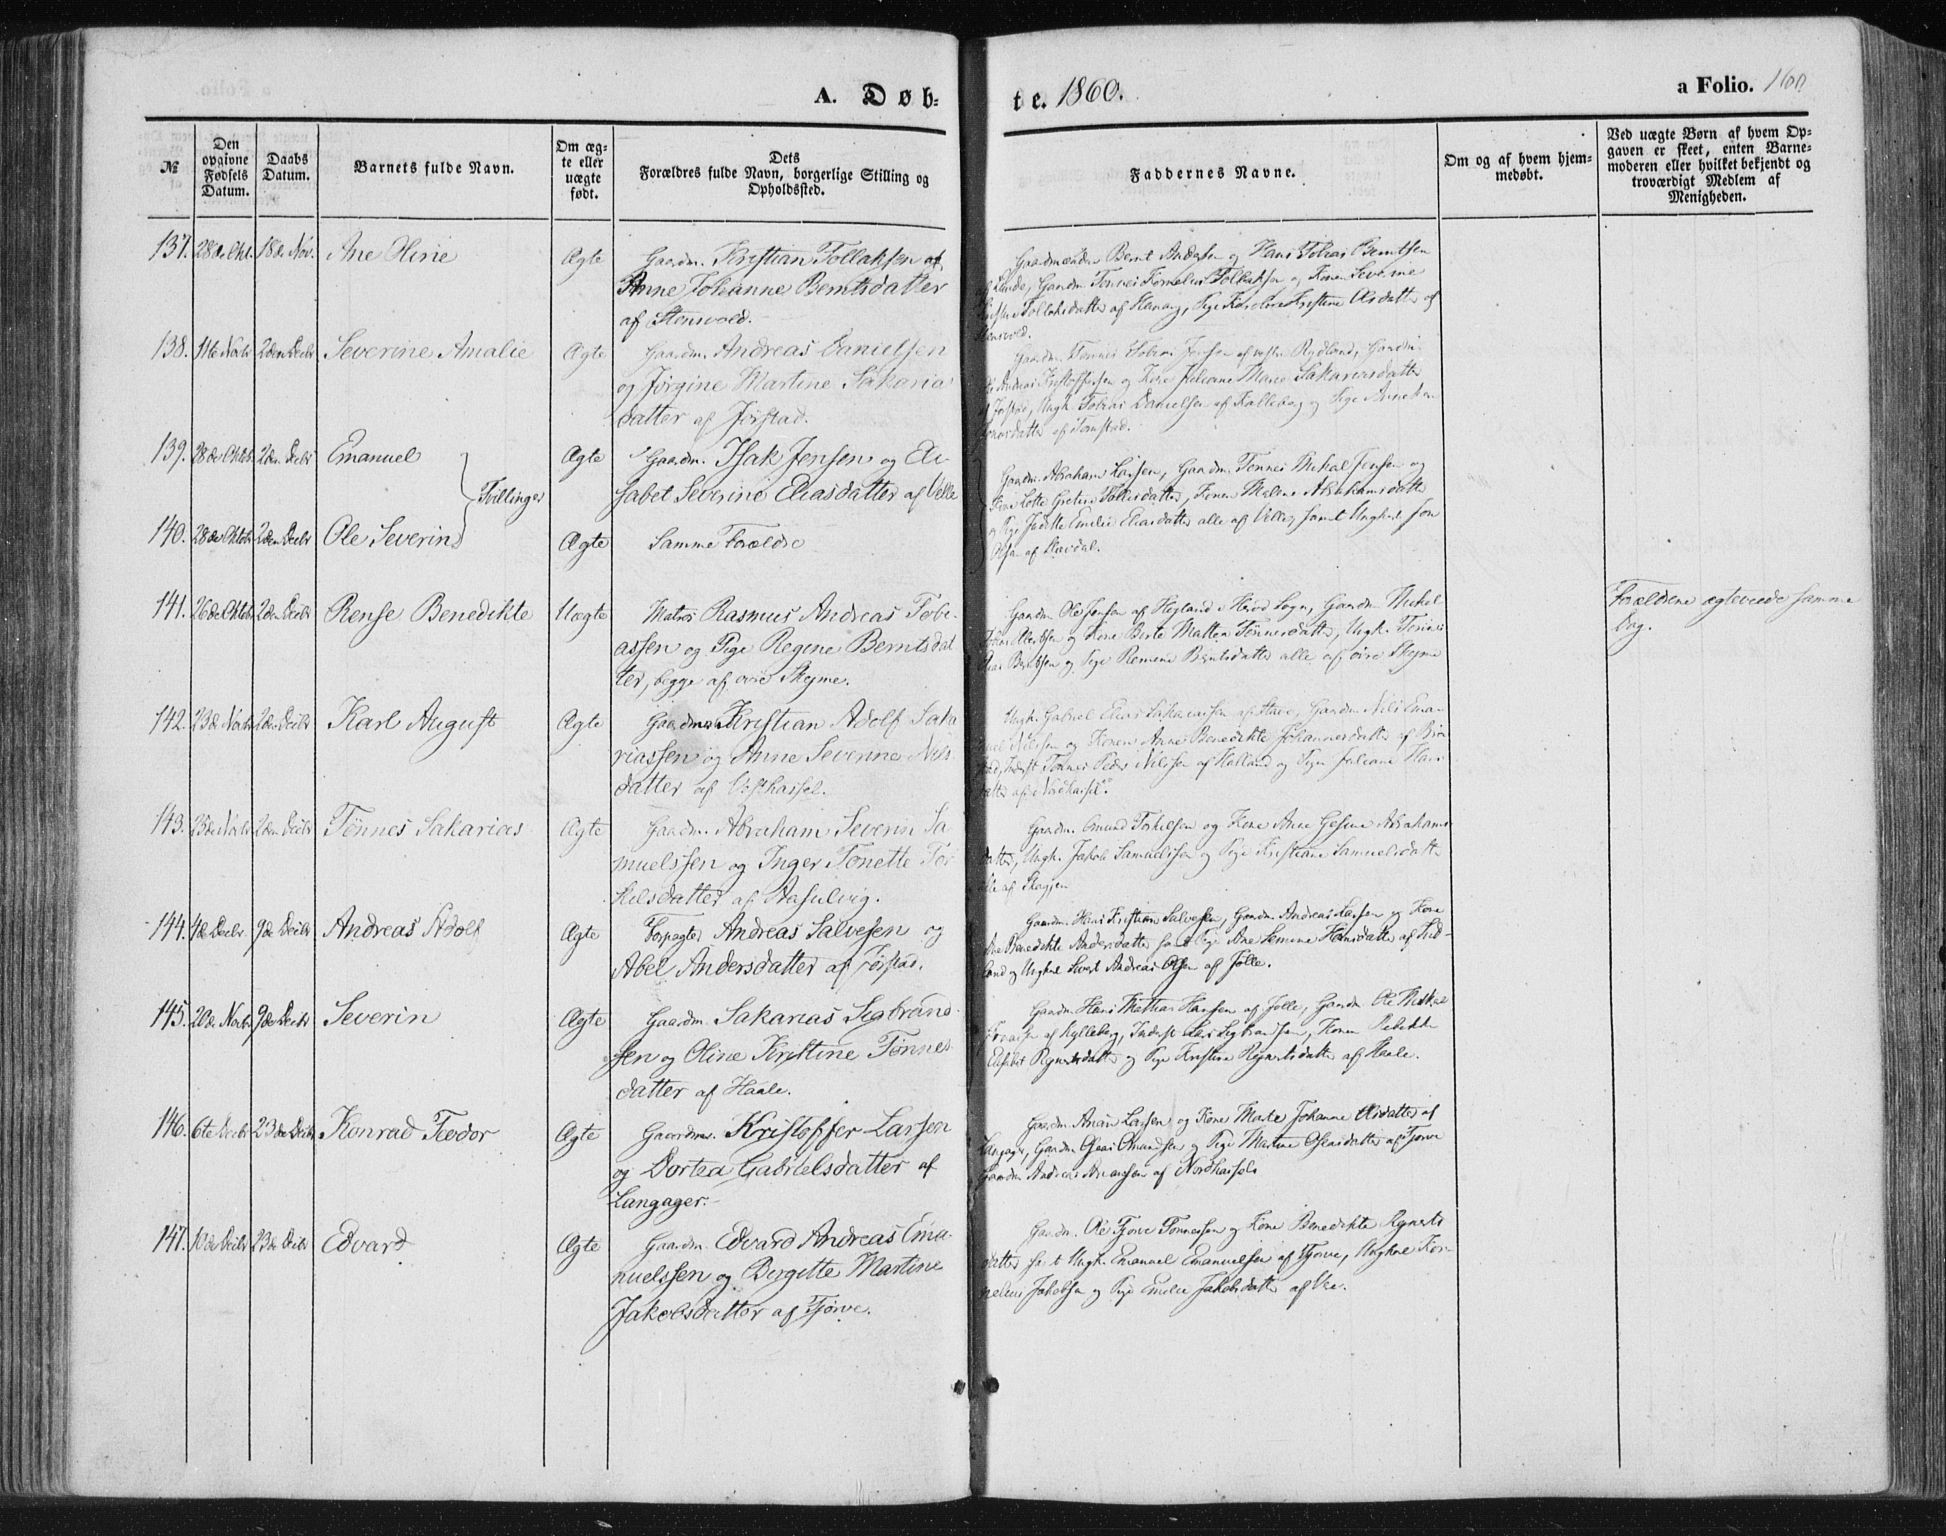 A. Døb-
te. 1860.
a Folio. 160
№
Den opgivne Fødsels Datum.
Daabs Datum.
Barnets fulde Navn.
Om ægte eller uægte født.
Dets Forældres fulde Navn, borgerlige Stilling og Opholdssted.
Faddernes Navne.
Om og af hvem hjemmedøbt.
Ved uægte Børn af hvem Opgaven er skeet, enten Barnemoderen eller hvilket bekjendt og troværdigt Medlem af Menigheden.
137. 28de Okt. 18de Nov. Ane Oline Ægte Gaardm. Kristian Tollaksen af
Anne Johanne Berntsdatter
af Stensvold.
Gaardmænden Bernt Andersen og Hans Tobias Berntsen
af Lunde, Gaardm. Tønnes Kornelius Tollaksen og Konen Severine
Tollaksdatter af Hanang, Pige Karoline Kristine Olsdatter af
Stensvold.
138. 11te Novbr 2den Decbr Severine Amalie Ægte Gaardm. Andreas Danielsen
og Jørgine Martine Sakarias
datter af Jørstad.
Gaardm. Tønnes Tobias Jensen af vestre Rydland, Gaardm.
Andreas Kristoffersen og Kone Juliane Marie Sakariasdatter
af Jørstad, Ungk. Tobias Danielsen af Kalleberg og Pige Anne
datter af Tomstad.
139. 28de Oktbr 2den Decbr Emanuel Ægte Gaardm. Isak Jensen og Eli-
sabet Severine Eliasdatter af Velle
Tvillinger
Gaardm. Abraham Larsen, Gaardm. Tønnes Mikal Jensen og
Kone Lotte Gretine datter, Konen Malene Abrahamsdatter
og Pige Jadette Emilie Eliasdatter alle af Velle, samt Ungkarl Jon
Olsen af
140. 28de Oktbr 2den Decbr Ole Severin Ægte Samme Forældre
141. 26de Oktbr 2den Decbr Rense Benedikte Uægte Matros Rasmus Andreas Tobi-
assen og Pige Regine Berntsdat-
ter, begge af øvre Skeime.
Gaardm. Ole Jensen af Hegland i Herad Sogn, Gaardm. Mikal
og Kone Berte Mattea Tønnesdatter, Ungk. Tønnes
Elias Berntsen og Pige Remine Berntsdatter alle af øvre Skeyme
Forældrene ægteviede samme
Dag.
142. 23de Novbr 2den Decbr Karl August Ægte Gaardm. Kristian Adolf Saka
riassen og Anne Severine Nils-
datter af Vesthassel.
Ungk. Gabriel Elias Sakariassen af Stave, Gaardm. Nils Ema-
nuel Nilssen og Konen Anne Benedikte Johannesdatter af
Inderst Tønnes Peder Nilssen af Halland og Pige Juliane Hans
datter af Nordhassel.
143. 23de Novbr 2den Decbr Tønnes Sakarias Ægte Gaardm. Abraham Severin Sa
muelssen og Inger Tonette Tor
kilsdatter af Aasulvig.
Gaardm. Omund Torkelsen og Kone Ane Gesine Abrahams
datter, Ungk. Jakob Samuelssen og Pige Kristiane Samuelsdatter
alle af Skagjen
144. 4de Decbr. 9de Decbr Andreas Adolf Ægte Forpagter Andreas Salvesen og
Abel Andersdatter af Jørstad.
Gaardm. Hans Kristian Salvesen, Gaardm. Andreas Larsen og Kone
Ane Benedikte Andersdatter samt Pige Ane Semine Hansdatter af
land og Ungkarl Sivert Andreas Olsen af Jølle.
145. 20de Novbr 9de Decbr Severin Ægte Gaardm. Sakarias Sigbrand
sen og Oline Kristine Tønnes-
datter af Haale.
Gaardm. Hans Mathias Hansen af Jølle, Gaardm. Ole Mikal
af Kylleberg, Inderst Lars Sigbrandsen, Konen Rebekka
Elisabet Reynertsdatter og Pige Kristine Reynertsdatter af Haale.
146. 6te Decbr 23de Decbr Konrad Teodor Ægte Gaardm. Kristoffer Larsen
og Dortea Gabrielsdatter af
Langager.
Gaardm. Anan Larsen og Kone Marte Johanne Olsdatter af
Langager, Gaardm. Oseas Omundsen og Pige Martine Oseasdatter af Tjørve
Gaardm. Andreas Andreassen af Nordhassel.
147. 10de Decbr 23de Decbr Edvard Ægte Gaardm. Edvard Andreas Ema-
nuelssen og Bergitte Martine
Jakobsdatter af Tjørve.
Gaardm. Ole Tjørve Tønnessen og Kone Benedikte Reynerts
datter samt Ungk. Emanuel Emanuelsen af Tjørve, Ungkarl Kor-
nelius Jakobsen og Pige Emilie Jakobsdatter af Vee.